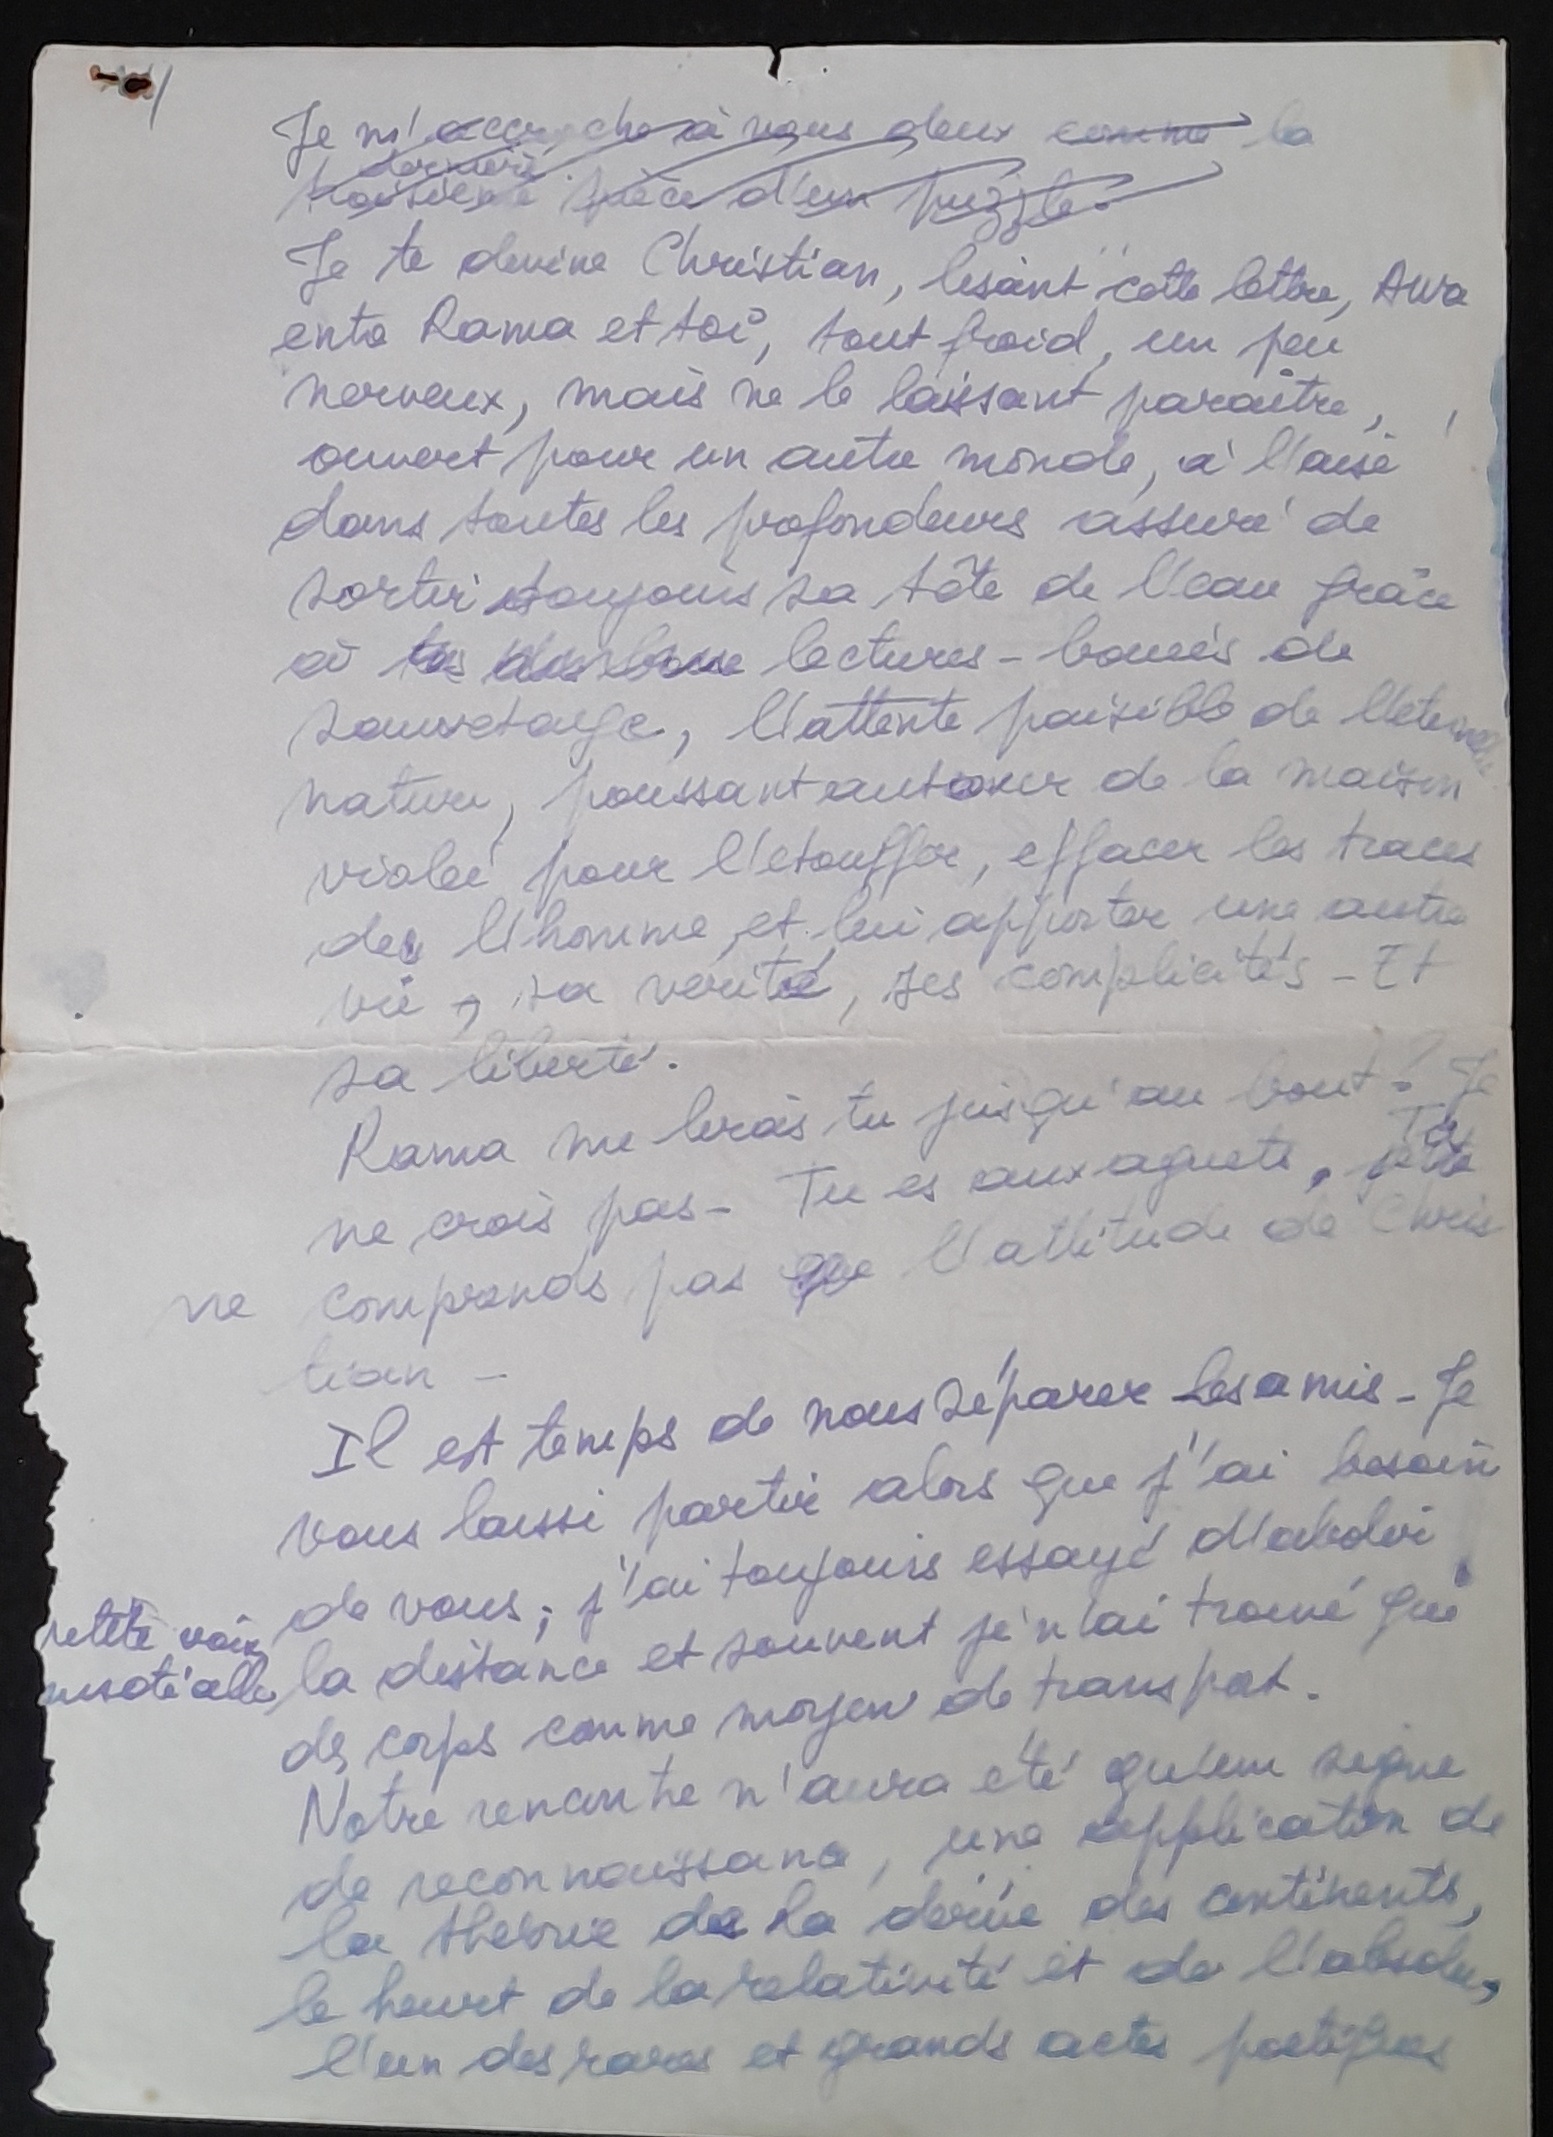 Je m'accroche à vous deux comme la
dernière
troisième pièce d'un puzzle.
Je te devine Christian, lisant cette lettre, Awa
ente Rama et toi, tout froid, un peu
nerveux, mais ne le laissant paraître,
ouvert pour un autre monde, à l'aise
dans toutes les profondeurs assuré de
sortir toujours sa tête de l'eau grâce
à lectures - bouées de
sauvetage, l'attente paisible de l'eternelle
nature, poussant autour de la maison
violée pour l'etouffer, effacer les traces
de l'homme et lui apporter une autre
vie, sa verité, ses complicités - Et
sa liberté.
Rama me liras tu jusqu'au bout? Je
ne crois pas - Tu es aux aguets. Tu
ne comprends pas l'attitude de Chris
tian -
Il est temps de nous séparer les amis - Je
vous laisse partir alors que j'ai besoin
de vous; j'ai toujours essayé d'abolir
petite voix
la distance et souvent je n'ai trouvé que
des corps comme moyen de transport.
Notre rencontre n'aura été qu'un signe
de reconnaissance, une application de
la théorie de la dérive des continents,
le heurt de la relativité et de l'absolu,
l'un des rares et grands actes poétiques